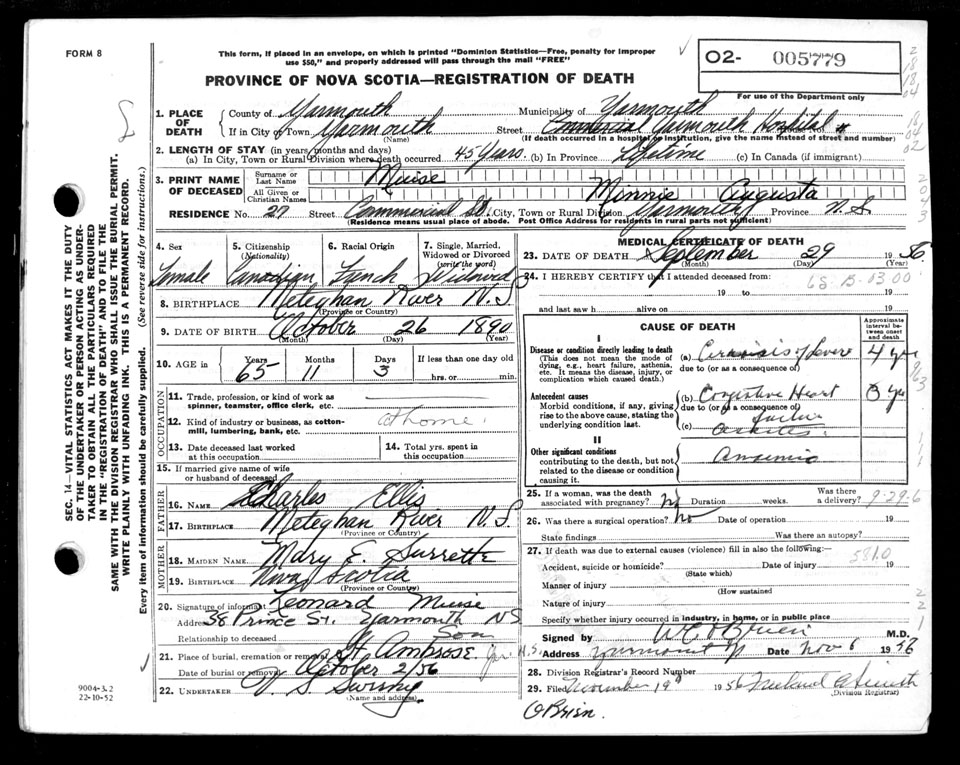 FORM 8
This form, if placed in an envelope, on which is printed "Dominion Statistics—Free, penalty for improper
use $50," and properly addressed will pass through the mail "FREE"
02- 005779
PROVINCE OF NOVA SCOTIA—REGISTRATION OF DEATH
For use of the Department only
1. PLACE OF DEATH
County of Yarmouth Municipality of Yarmouth
If in City or Town Yarmouth Street Commercial Yarmouth Hospital
(Name) (If death occurred in a hospital or institution, give the name instead of street and number)
2. LENGTH OF STAY (in years, months and days)
(a) In City, Town or Rural Division where death occurred 45 Years. (b) In Province Lifetime (c) In Canada (if immigrant)
3. PRINT NAME OF DECEASED
Surname or Last Name Muise
All Given or Christian Names Minnie Augusta
RESIDENCE No. 27 Street Commercial St. City, Town or Rural Division Yarmouth Province N.S
(Residence means usual place of abode. Post Office Address for residents in rural parts not sufficient)
4. Sex 5. Citizenship (Nationality) 6. Racial Origin 7. Single, Married, Widowed or Divorced (write the word)
Female Canadian French Widowed
8. BIRTHPLACE Meteghan River N.S
(Province or Country)
9. DATE OF BIRTH October 26 1890
(Month) (Day) (Year)
10. AGE in Years 65 Months 11 Days 3 If less than one day old hrs. or min.
OCCUPATION
11. Trade, profession, or kind of work as spinner, teamster, office clerk, etc.
12. Kind of industry or business, as cotton-mill, lumbering, bank, etc. at home.
13. Date deceased last worked at this occupation 14. Total yrs. spent in this occupation
15. If married give name of wife or husband of deceased
FATHER
16. NAME Charles Ellis
17. BIRTHPLACE Meteghan River N.S.
(Province or Country)
MOTHER
18. MAIDEN NAME Mary E. Surrette
19. BIRTHPLACE Nova Scotia
(Province or Country)
20. Signature of informant Leonard Muise
Address 38 Prince St. Yarmouth NS
Relationship to deceased Son
21. Place of burial, cremation or removal St Ambrose. Yar. N.S.
Date of burial or removal October 2/56
22. UNDERTAKER V. S. Sweeny
(Name and address)
MEDICAL CERTIFICATE OF DEATH
23. DATE OF DEATH September 29 1956
(Month) (Day) (Year)
24. I HEREBY CERTIFY that I attended deceased from:
19 to 19
and last saw h alive on 19
CAUSE OF DEATH
Approximate interval between onset and death
I
Disease or condition directly leading to death (a) Cirrhosis of Liver 4 yrs
(This does not mean the mode of dying, e.g., heart failure, asthenia, etc. It means the disease, injury, or complication which caused death.)
due to (or as a consequence of)
Antecedent causes (b) Congestive Heart failure
Morbid conditions, if any, giving rise to the above cause, stating the underlying condition last.
due to (or as a consequence of)
(c)
II
Other significant conditions Anaemia
contributing to the death, but not related to the disease or condition causing it.
25. If a woman, was the death associated with pregnancy? No Duration weeks. Was there a delivery? 9-29-6
26. Was there a surgical operation? no Date of operation 19
State findings Was there an autopsy?
27. If death was due to external causes (violence) fill in also the following:— 581.0
Accident, suicide or homicide? Date of injury 19
(State which)
Manner of injury
(How sustained
Nature of injury
Specify whether injury occurred in industry, in home, or in public place
Signed by O'Brien M.D.
Address Yarmouth Date Nov 6 1956
28. Division Registrar's Record Number
29. Filed November 19th 1956
(Division Registrar)
O'Brien.
SEC. 14—VITAL STATISTICS ACT MAKES IT THE DUTY
OF THE UNDERTAKER OR PERSON ACTING AS UNDER-
TAKER TO OBTAIN ALL THE PARTICULARS REQUIRED
IN THE "REGISTRATION OF DEATH" AND TO FILE THE
SAME WITH THE DIVISION REGISTRAR WHO SHALL ISSUE THE BURIAL PERMIT.
WRITE PLAINLY WITH UNFADING INK. THIS IS A PERMANENT RECORD.
Every item of information should be carefully supplied. (See reverse side for instructions.)
9004-3.2
22-10-52